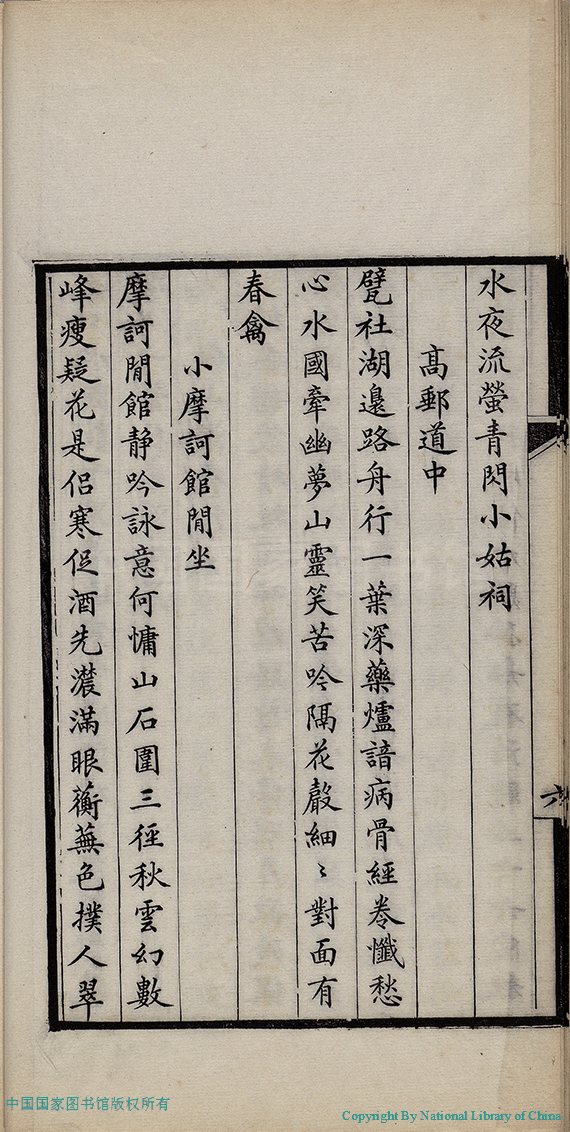 水夜流螢青閃小姑祠
高郵道中
甓社湖邊路舟行一葉深藥爐諳病骨經卷懺愁
心水國牽幽夢山靈笑苦吟隔花聲細〻對面有
春禽
小摩訶館閒坐
摩訶閒館靜吟詠意何慵山石圍三徑秋雲幻數
峰瘦疑花是侶寒促酒先濃滿眼蘅蕪色撲人翠
六
中国国家图书馆版权所有
Copyright By National Library of China